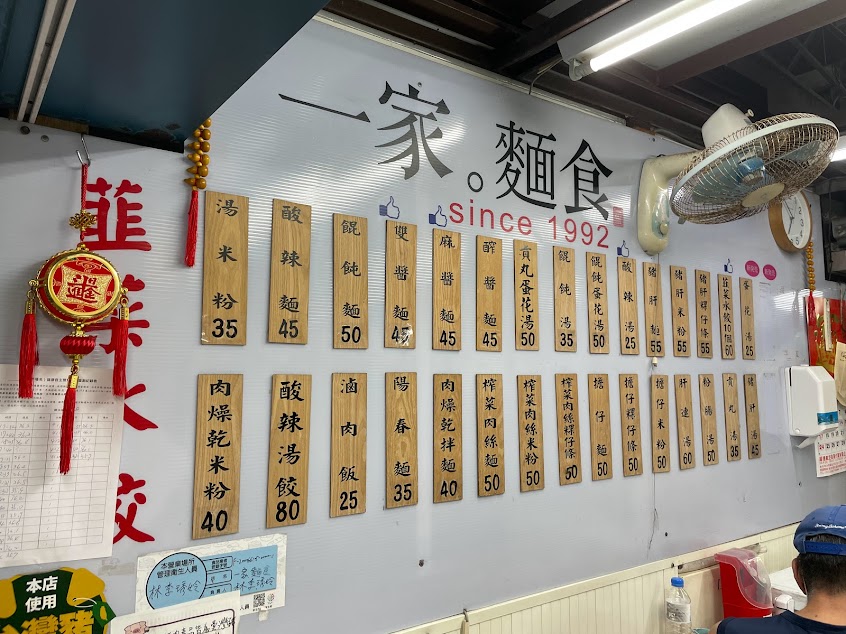 一家。麵食
since 1992
湯米粉35
酸辣麵45
餛飩麵50
雙醬麵45
麻醬麵45
醡醬麵45
貢丸蛋花湯50
餛飩湯35
餛飩蛋花湯50
酸辣湯25
豬肝麵55
豬肝米粉55
豬肝粿仔條55
韮菜水餃10個60
蛋花湯25
肉燥乾米粉40
酸辣湯餃80
滷肉飯25
陽春麵35
肉燥乾拌麵40
榨菜肉絲麵50
榨菜肉絲米粉50
榨菜肉絲粿仔條50
擔仔麵50
擔仔粿仔條50
擔仔米粉50
肝連湯60
粉腸湯50
貢丸湯35
豬肝湯45
韮菜水餃
本營業場所
管理衛生人員
林李琇玲
一家麵食
林李琇玲
本店
使用
台灣豬